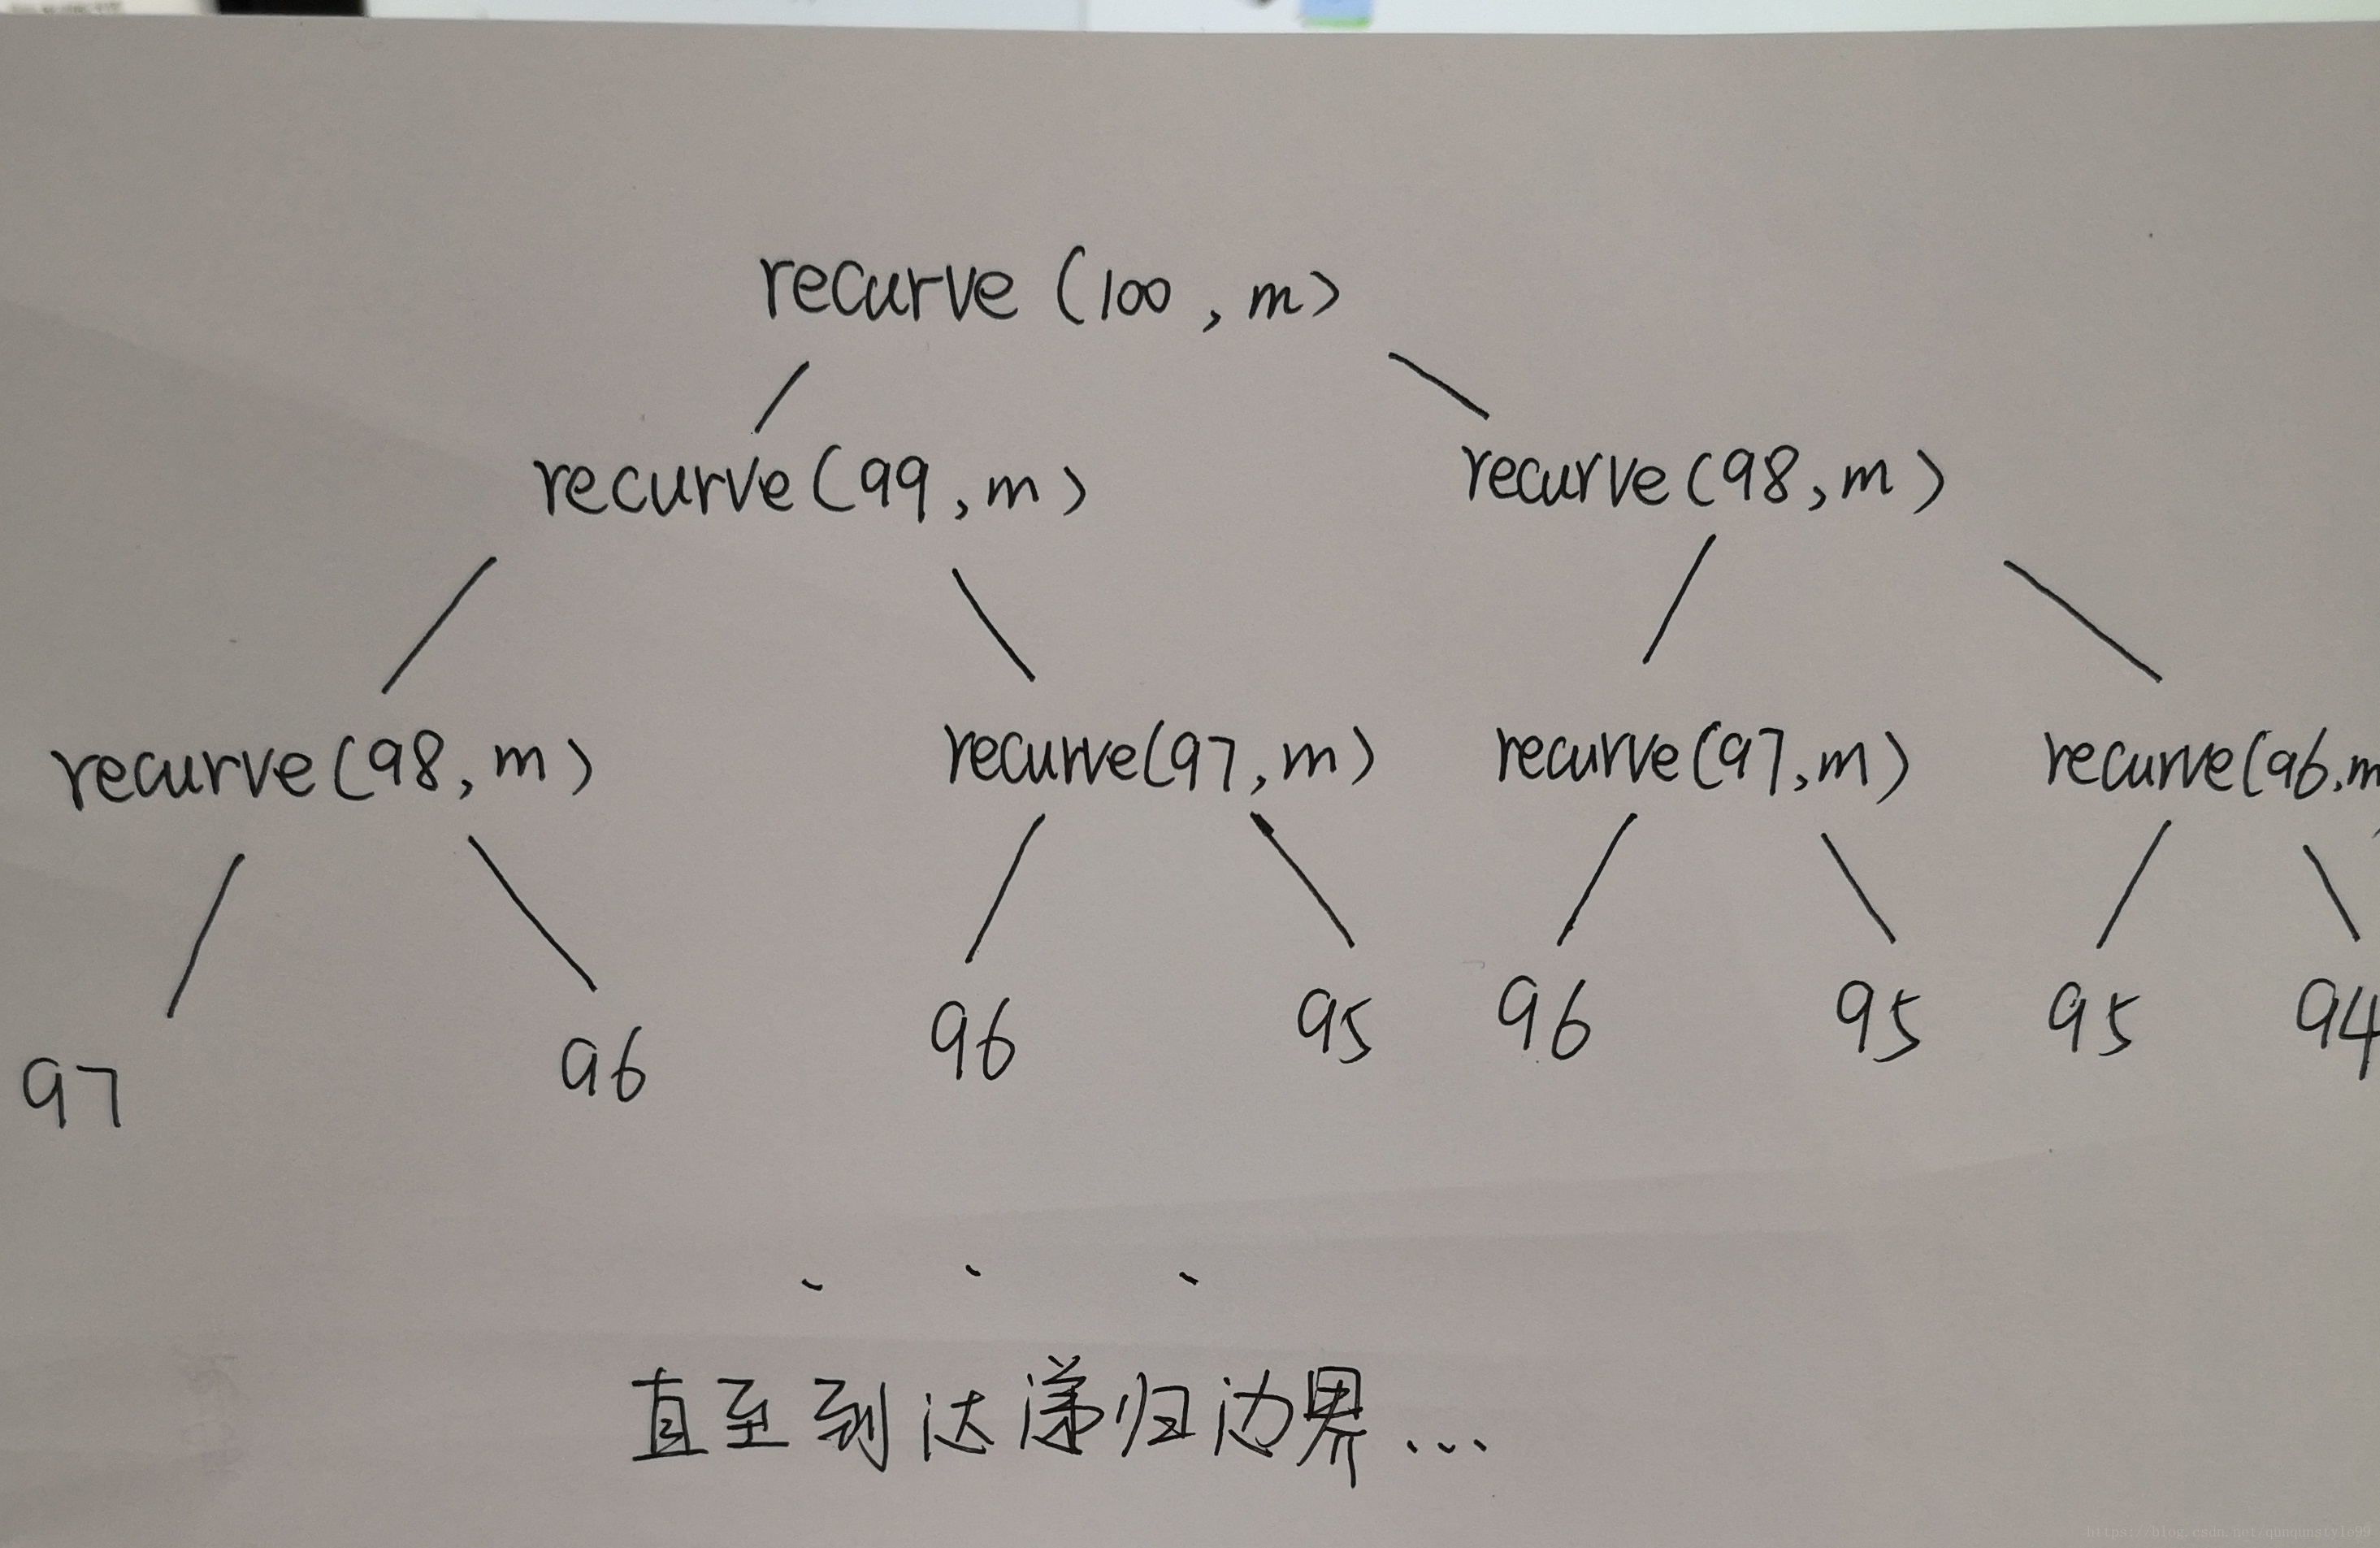 recurve (100, m)
recurve(99,m) recurve(98,m)
recurve(98,m) recurve(97,m) recurve(97,m) recurve(96,m
97 96 96 95 96 95 95 94
...
直至到达递归边界...
https://blog.csdn.net/qunqunstyle99